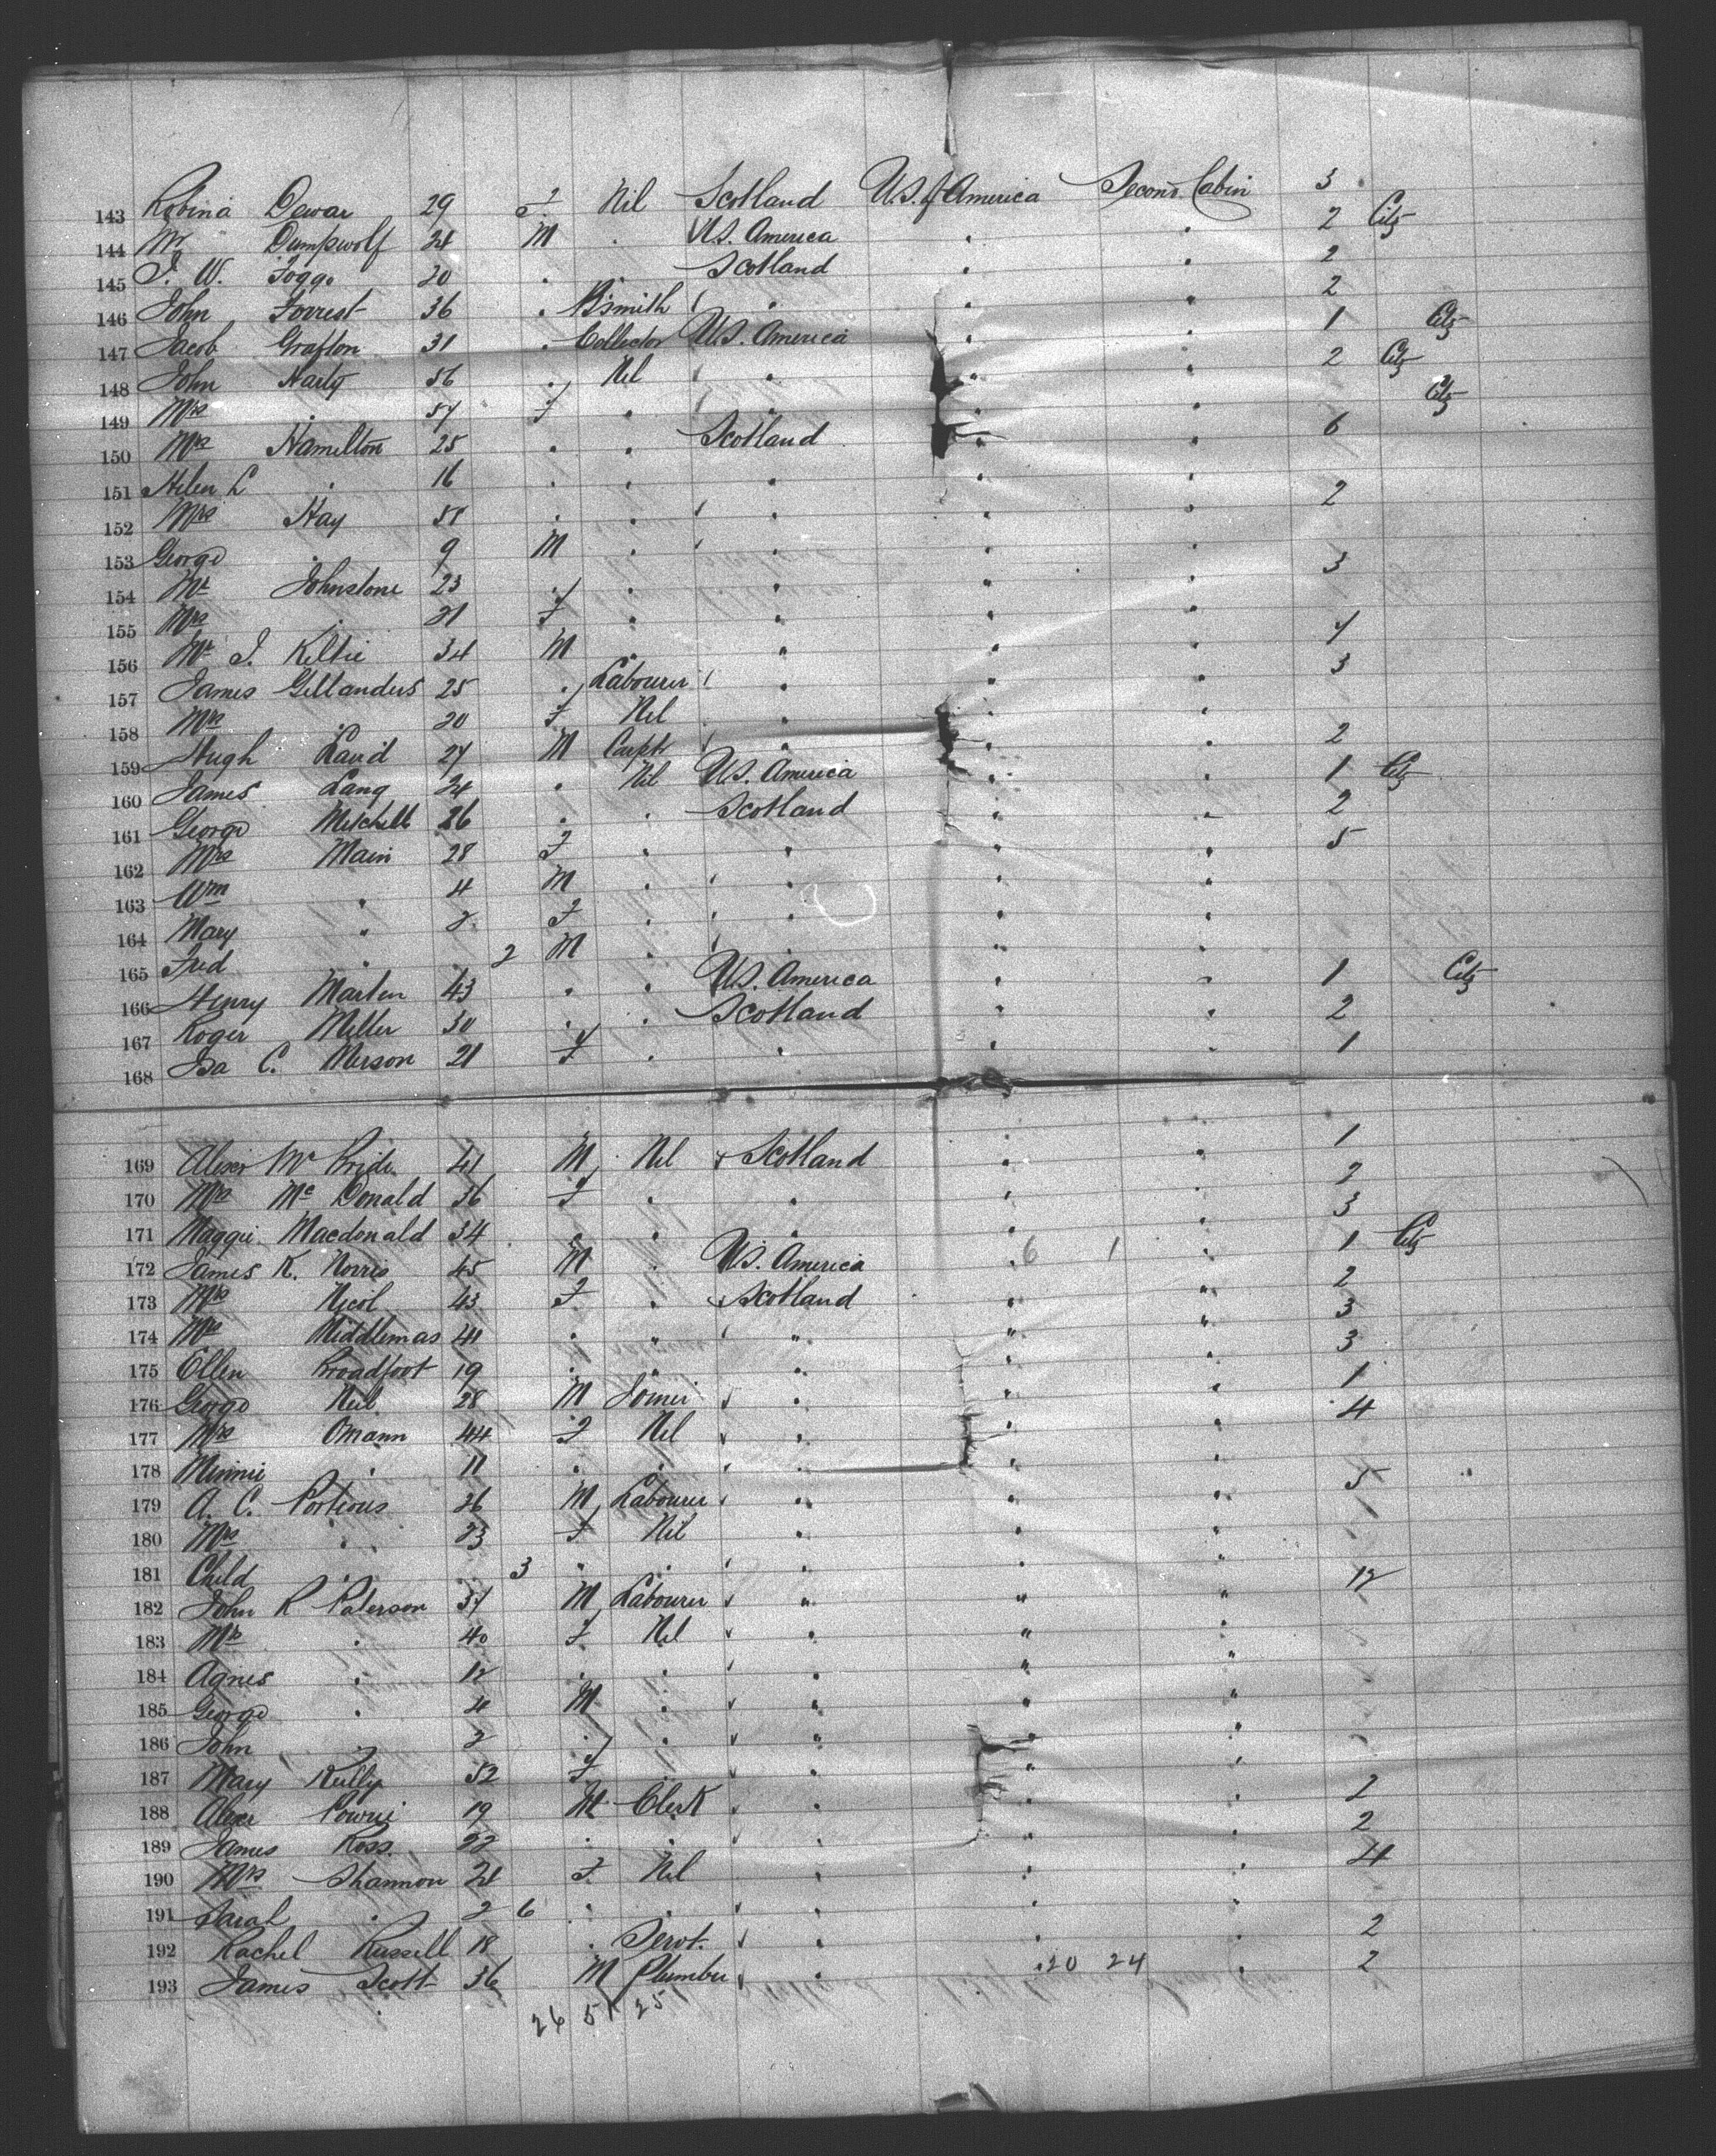 143 Robina Dewar 29 F Nil Scotland U.S. of America Second Cabin 3
144 Mr Dumpwolf 24 M " U.S. America " " 2 Citz
145 J. W. Foggo 20 " " Scotland " " 2
146 John Forrest 36 " B'smith " " " 2
147 Jacob Grafton 31 " Collector U.S. America " " 1 Citz
148 John Harty 56 " Nil " " " 2 Citz
149 Mrs " 54 F " " " " Citz
150 Mrs Hamilton 25 " " Scotland " " 6
151 Helen L " 16 " " " " "
152 Mrs Hay 58 " " " " " 2
153 George " 9 M " " " "
154 Mr Johnstone 23 " " " " " 3
155 Mrs " 21 F " " " "
156 Mr J. Keltie 34 M " " " "
157 James Gillanders 25 " Labourer " " " 3
158 Mrs " 20 F Nil " " "
159 Hugh Laird 27 M Carptr " " " 2
160 James Lang 24 " Nil U.S. America " " 1 Citz
161 George Mitchell 26 " " Scotland " " 2
162 Mrs Main 28 F " " " " 5
163 Wm " 4 M " " " "
164 Mary " 2 F " " " "
165 Fred " 2 M " " " "
166 Henry Martin 43 " " U.S. America " " 1 Citz
167 Roger Miller 30 " " Scotland " " 2
168 Isa C. Merson 21 F " " " " 1
169 Alexr McBride 41 M Nil Scotland " " 1
170 Mrs McDonald 36 F " " " " 2
171 Maggie Macdonald 34 " " " " " 3
172 James K. Norris 45 M " U.S. America 6 1 " 1 Citz
173 Mrs Nicol 43 F " Scotland " " 2
174 Mrs Middlemas 41 " " " " " 3
175 Ellen Broadfoot 19 " " " " " 3
176 George Neil 28 M Joiner " " " 1
177 Mrs Omann 44 F Nil " " " 4
178 Minnie " 11 " " " " "
179 A. C. Porteous 26 M Labourer " " " 5
180 Mrs " 23 F Nil " " "
181 Child " 3 " " " " "
182 John R Paterson 37 M Labourer " " " 12
183 Mrs " 40 F Nil " " "
184 Agnes " 12 " " " " "
185 George " 4 M " " " "
186 John " 2 " " " " "
187 Mary Kelly 52 F " " " "
188 Alexr Powrie 19 M Clerk " " " 2
189 James Ross 22 " " " " " 2
190 Mrs Shannon 24 F Nil " " " 4
191 Sarah " 2 6 " " " " "
192 Rachel Russell 18 " Servt. " " " 2
193 James Scott 36 M Plumber " 20 24 " 2
26 51 25